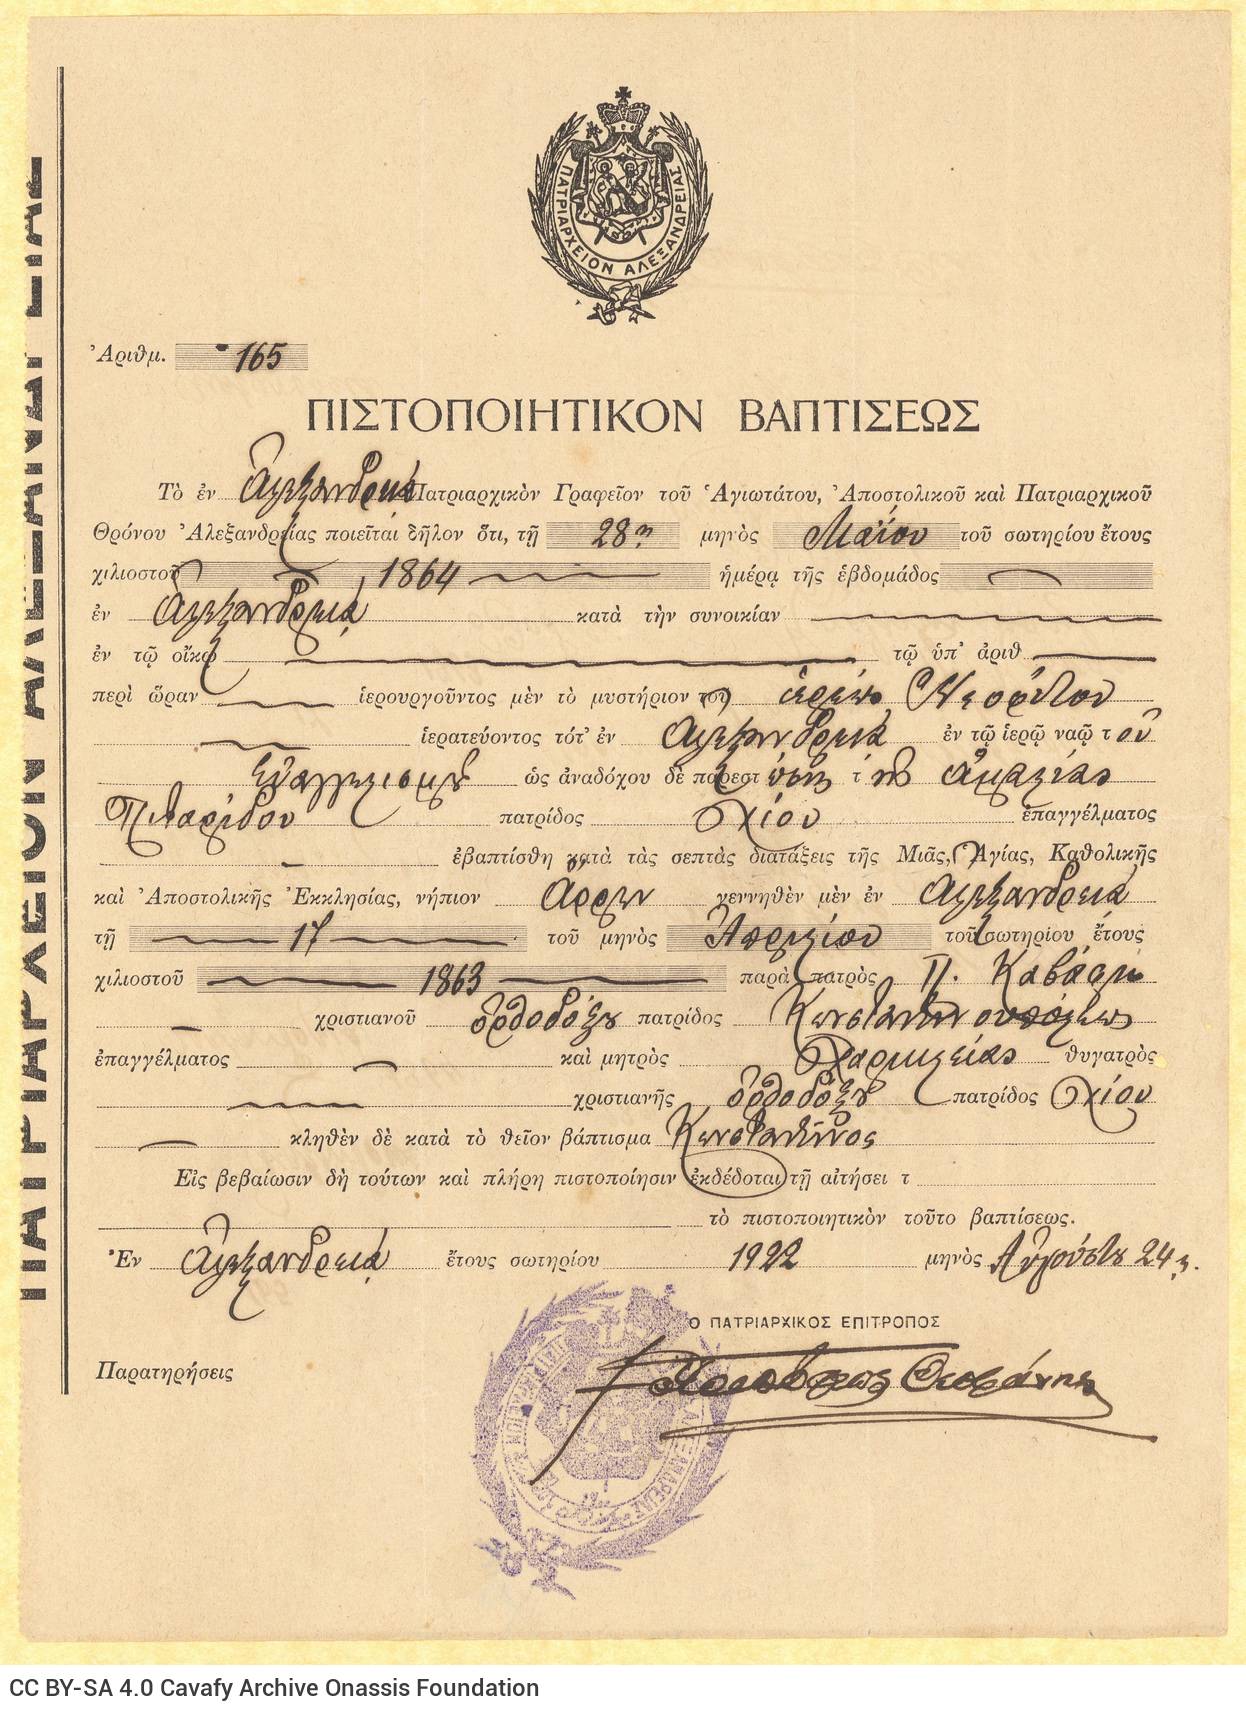 ΠΑΤΡΙΑΡΧΕΙΟΝ ΑΛΕΞΑΝΔΡΕΙΑΣ
ΠΑΤΡΙΑΡΧΕΙΟΝ ΑΛΕΞΑΝΔΡΕΙΑΣ
Ἀριθμ. 165
ΠΙΣΤΟΠΟΙΗΤΙΚΟΝ ΒΑΠΤΙΣΕΩΣ
Τὸ ἐν Ἀλεξανδρείᾳ Πατριαρχικὸν Γραφεῖον τοῦ Ἁγιωτάτου, Ἀποστολικοῦ καὶ Πατριαρχικοῦ
Θρόνου Ἀλεξανδρείας ποιεῖται δῆλον ὅτι, τῇ 28ῃ μηνὸς Μαΐου τοῦ σωτηρίου ἔτους
χιλιοστοῦ 1864 ἡμέρᾳ τῆς ἑβδομάδος
ἐν Ἀλεξανδρείᾳ κατὰ τὴν συνοικίαν
ἐν τῷ οἴκῳ τῷ ὑπ' ἀριθ
περὶ ὥραν ἱερουργοῦντος μὲν τὸ μυστήριον τοῦ ἱερέως
ἱερατεύοντος τότ' ἐν Ἀλεξανδρείᾳ ἐν τῷ ἱερῷ ναῷ τοῦ
Εὐαγγελισμοῦ ὡς ἀναδόχου δὲ παρεστώσης τῆς Ἀμαλίας
Πιταρίδου πατρίδος Χίου ἐπαγγέλματος
ἐβαπτίσθη κατὰ τὰς σεπτὰς διατάξεις τῆς Μιᾶς, Ἁγίας, Καθολικῆς
καὶ Ἀποστολικῆς Ἐκκλησίας, νήπιον ἄρρεν γεννηθὲν μὲν ἐν Ἀλεξανδρείᾳ
τῇ 17 τοῦ μηνὸς Ἀπριλίου τοῦ σωτηρίου ἔτους
χιλιοστοῦ 1863 παρὰ πατρὸς Π. Καβάφη
χριστιανοῦ ὀρθοδόξου πατρίδος Κωνσταντινουπόλεως
ἐπαγγέλματος καὶ μητρὸς Χαρικλείας θυγατρὸς
χριστιανῆς ὀρθοδόξου πατρίδος Χίου
κληθὲν δὲ κατὰ τὸ θεῖον βάπτισμα Κωνσταντῖνος
Εἰς βεβαίωσιν δὴ τούτων καὶ πλήρη πιστοποίησιν ἐκδέδοται τῇ αἰτήσει τ
τὸ πιστοποιητικὸν τοῦτο βαπτίσεως.
Ἐν Ἀλεξανδρείᾳ ἔτους σωτηρίου 1922 μηνὸς Αὐγούστου 24ῃ.
Ο ΠΑΤΡΙΑΡΧΙΚΟΣ ΕΠΙΤΡΟΠΟΣ
Θεοφάνης
Παρατηρήσεις
CC BY-SA 4.0 Cavafy Archive Onassis Foundation